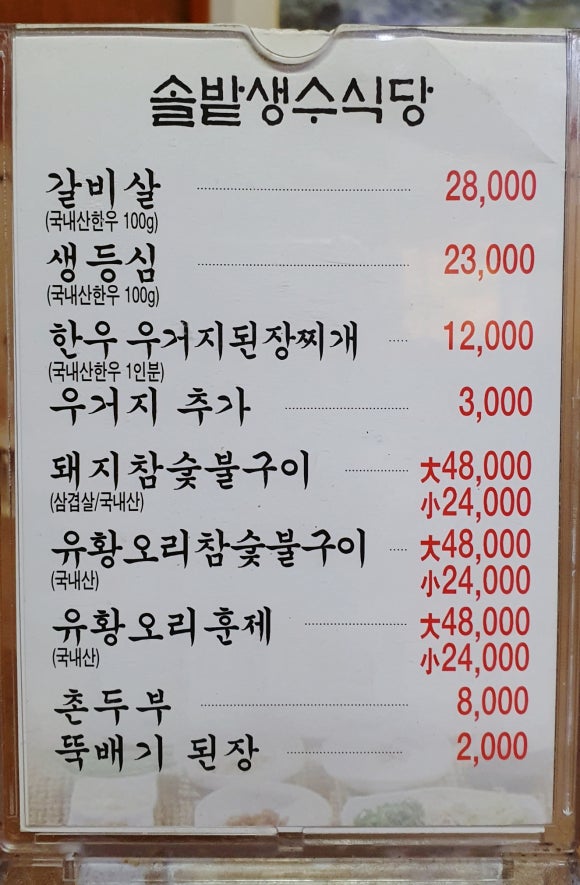 솔밭생수식당
갈비살 28,000
(국내산한우 100g)
생등심 23,000
(국내산한우 100g)
한우 우거지된장찌개 12,000
(국내산한우 1인분)
우거지 추가 3,000
돼지참숯불구이 大48,000
(삼겹살/국내산) 小24,000
유황오리참숯불구이 大48,000
(국내산) 小24,000
유황오리훈제 大48,000
(국내산) 小24,000
촌두부 8,000
뚝배기 된장 2,000